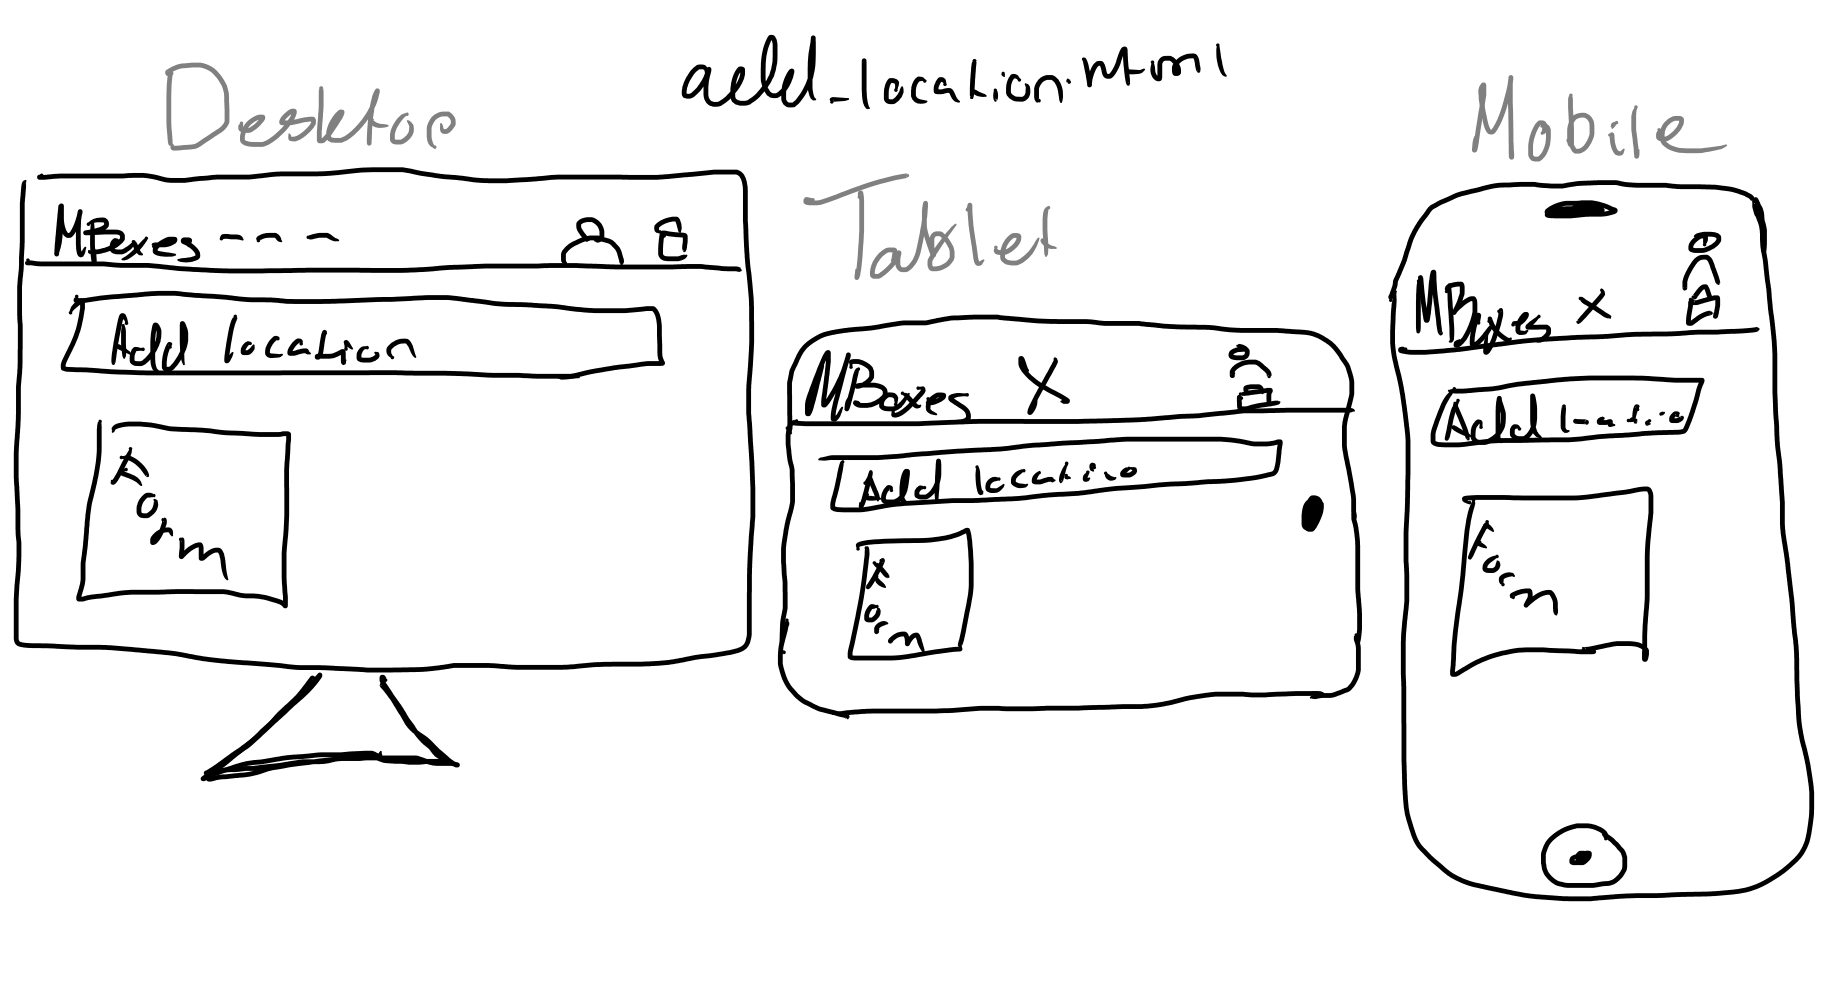 add_location.html
Desktop
MBoxes - - -
Add location
Form
Tablet
MBoxes X
Add locatio
Form
Mobile
MBoxes X
Add
Form